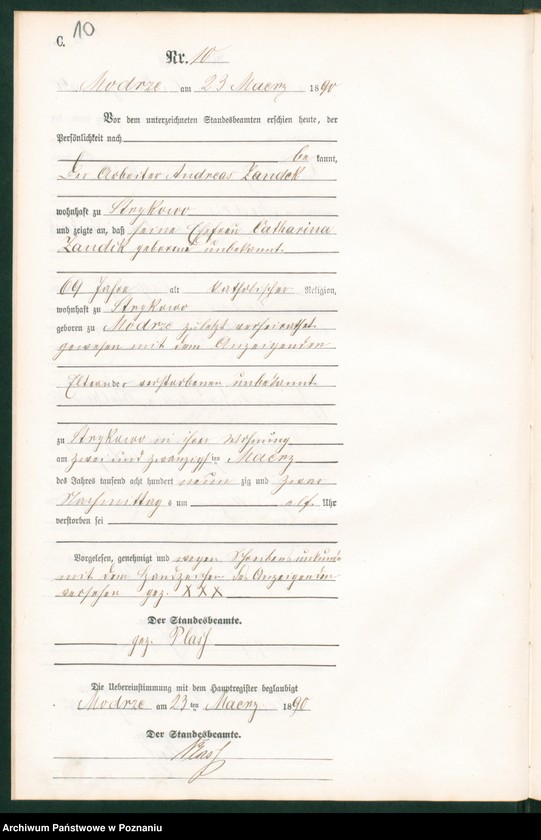 C. 10
Nr. 10
Modrze am 23 Maerz 1890
Vor dem unterzeichneten Standesbeamten erschien heute, der
Persönlichkeit nach
be kannt,
der Arbeiter Andreas Landek
wohnhaft zu Strykowo
und zeigte an, daß seine Ehefrau Catharina
Landek geborene unbekannt
69 Jahre alt katholischer Religion,
wohnhaft zu Strykowo
geboren zu Modrze zuletzt verheirathet
gewesen mit dem Anzeigenden
Eltern der verstorbenen unbekannt
zu Strykowo in ihrer Wohnung
am zwei und zwanzigsten Maerz
des Jahres tausend acht hundert neun zig und zwar
Nachmittag s um elf Uhr
verstorben sei
Vorgelesen, genehmigt und wegen Schreibensunkunde
mit dem Handzeichen des Anzeigenden
versehen gez. XXX
Der Standesbeamte.
gez.
Die Uebereinstimmung mit dem Hauptregister beglaubigt
Modrze am 23 ten Maerz 1890
Der Standesbeamte.
Archiwum Państwowe w Poznaniu